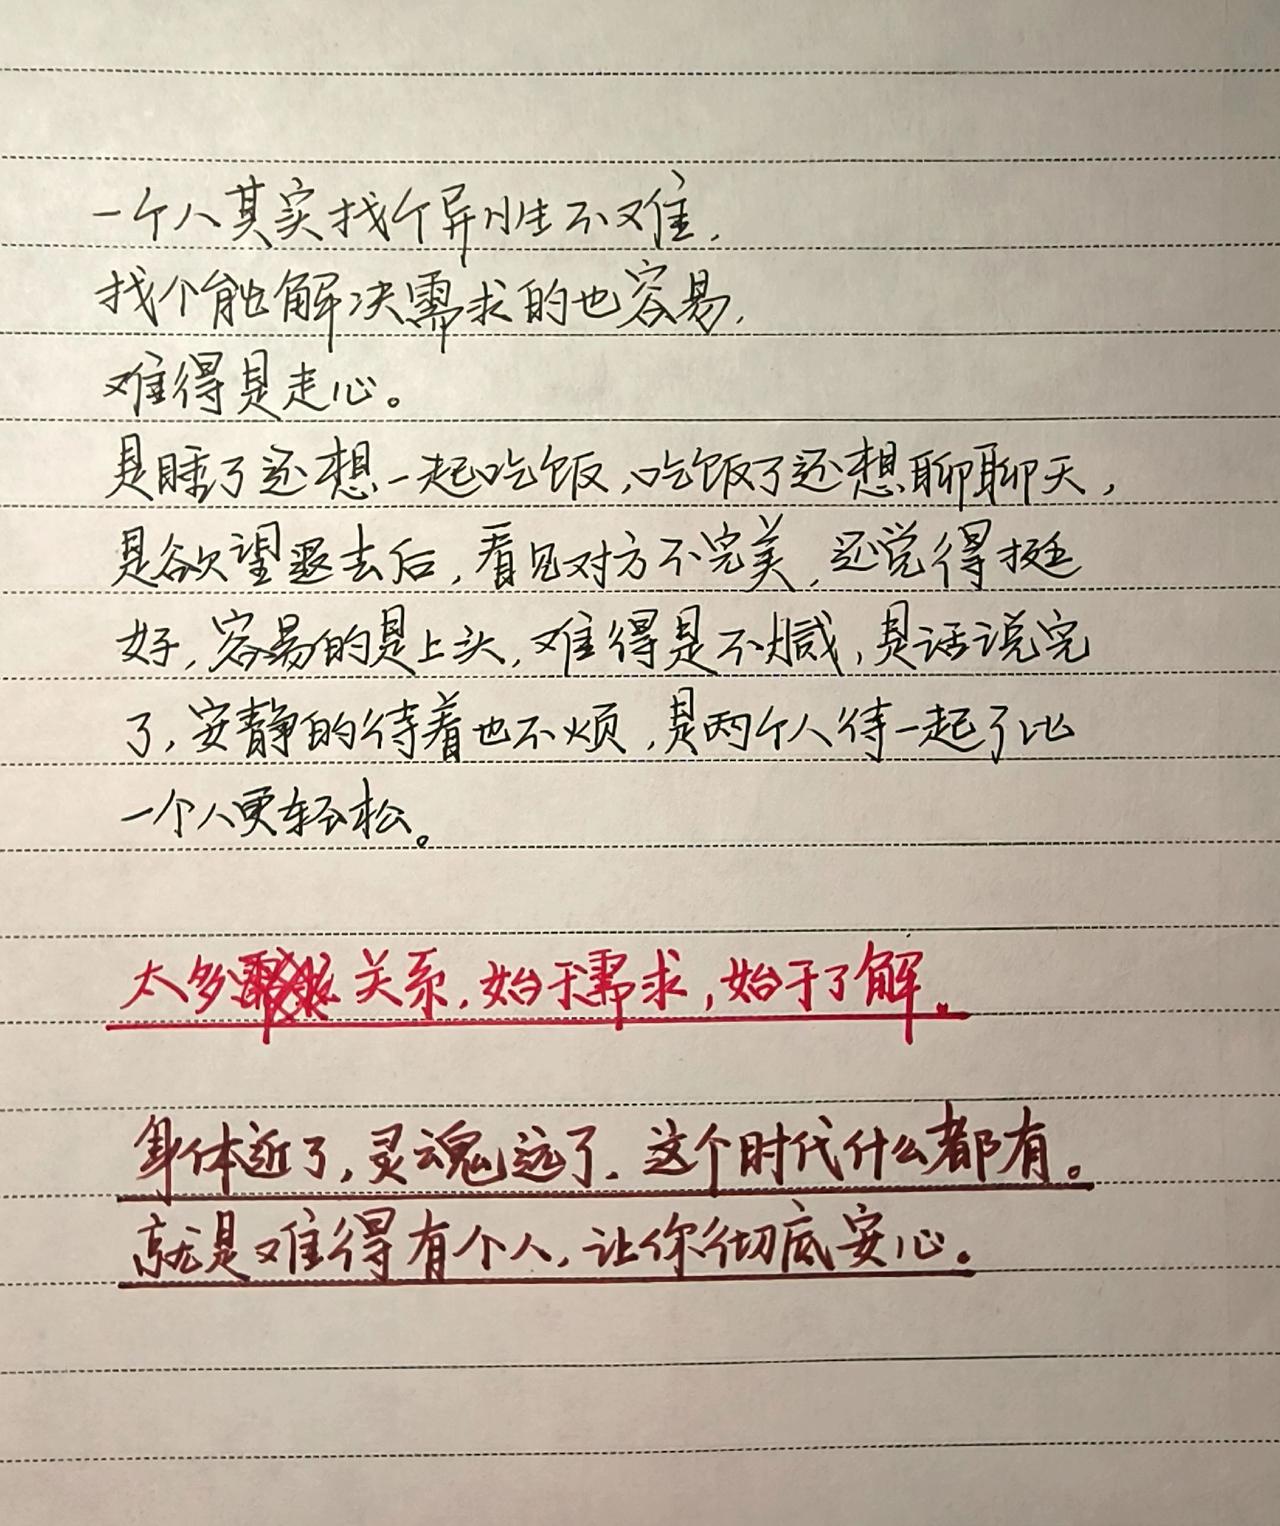 一个人其实找个异性不难，
找个能解决需求的也容易，
难得是走心。
是睡了还想一起吃饭，吃饭了还想聊聊天，
是欲望退去后，看见对方不完美，还觉得挺
好，容易的是上头，难得是不腻，是话说完
了，安静的待着也不烦，是两个人待一起了比
一个人更轻松。
太多关系，始于需求，始于了解。
身体近了，灵魂远了，这个时代什么都有。
就是难得有个人，让你彻底安心。